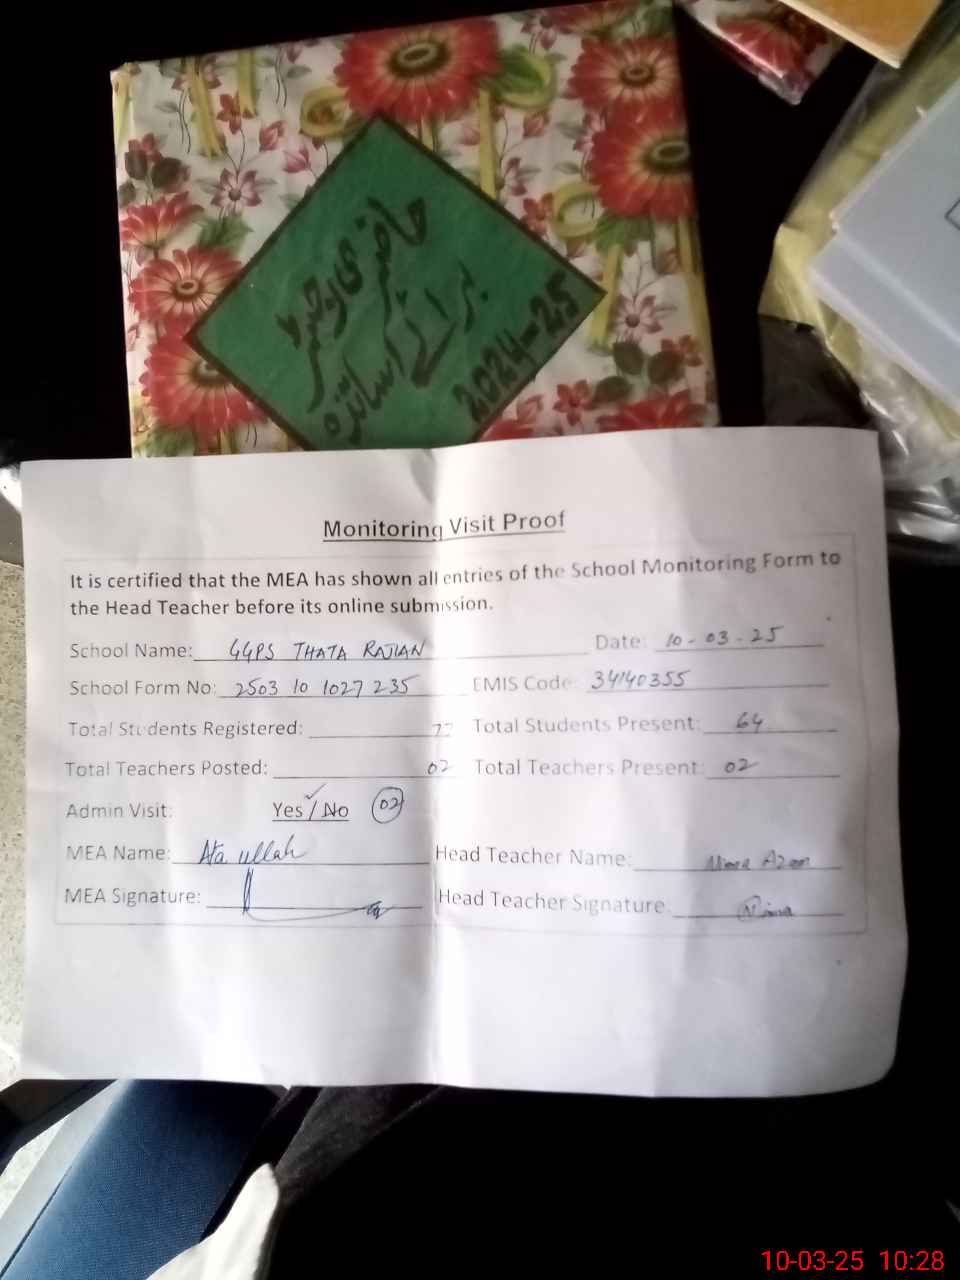 حاضری رجسٹر
برائے اساتذہ
2024-25
Monitoring Visit Proof
It is certified that the MEA has shown all entries of the School Monitoring Form to
the Head Teacher before its online submission.
School Name: GGPS THATA RAJIAN Date: 10-03-25
School Form No: 2503 10 1027 235 EMIS Code: 34140355
Total Students Registered: 77 Total Students Present: 64
Total Teachers Posted: 02 Total Teachers Present: 02
Admin Visit: Yes / No 02
MEA Name: Ata ullah Head Teacher Name:
MEA Signature: Head Teacher Signature:
10-03-25 10:28